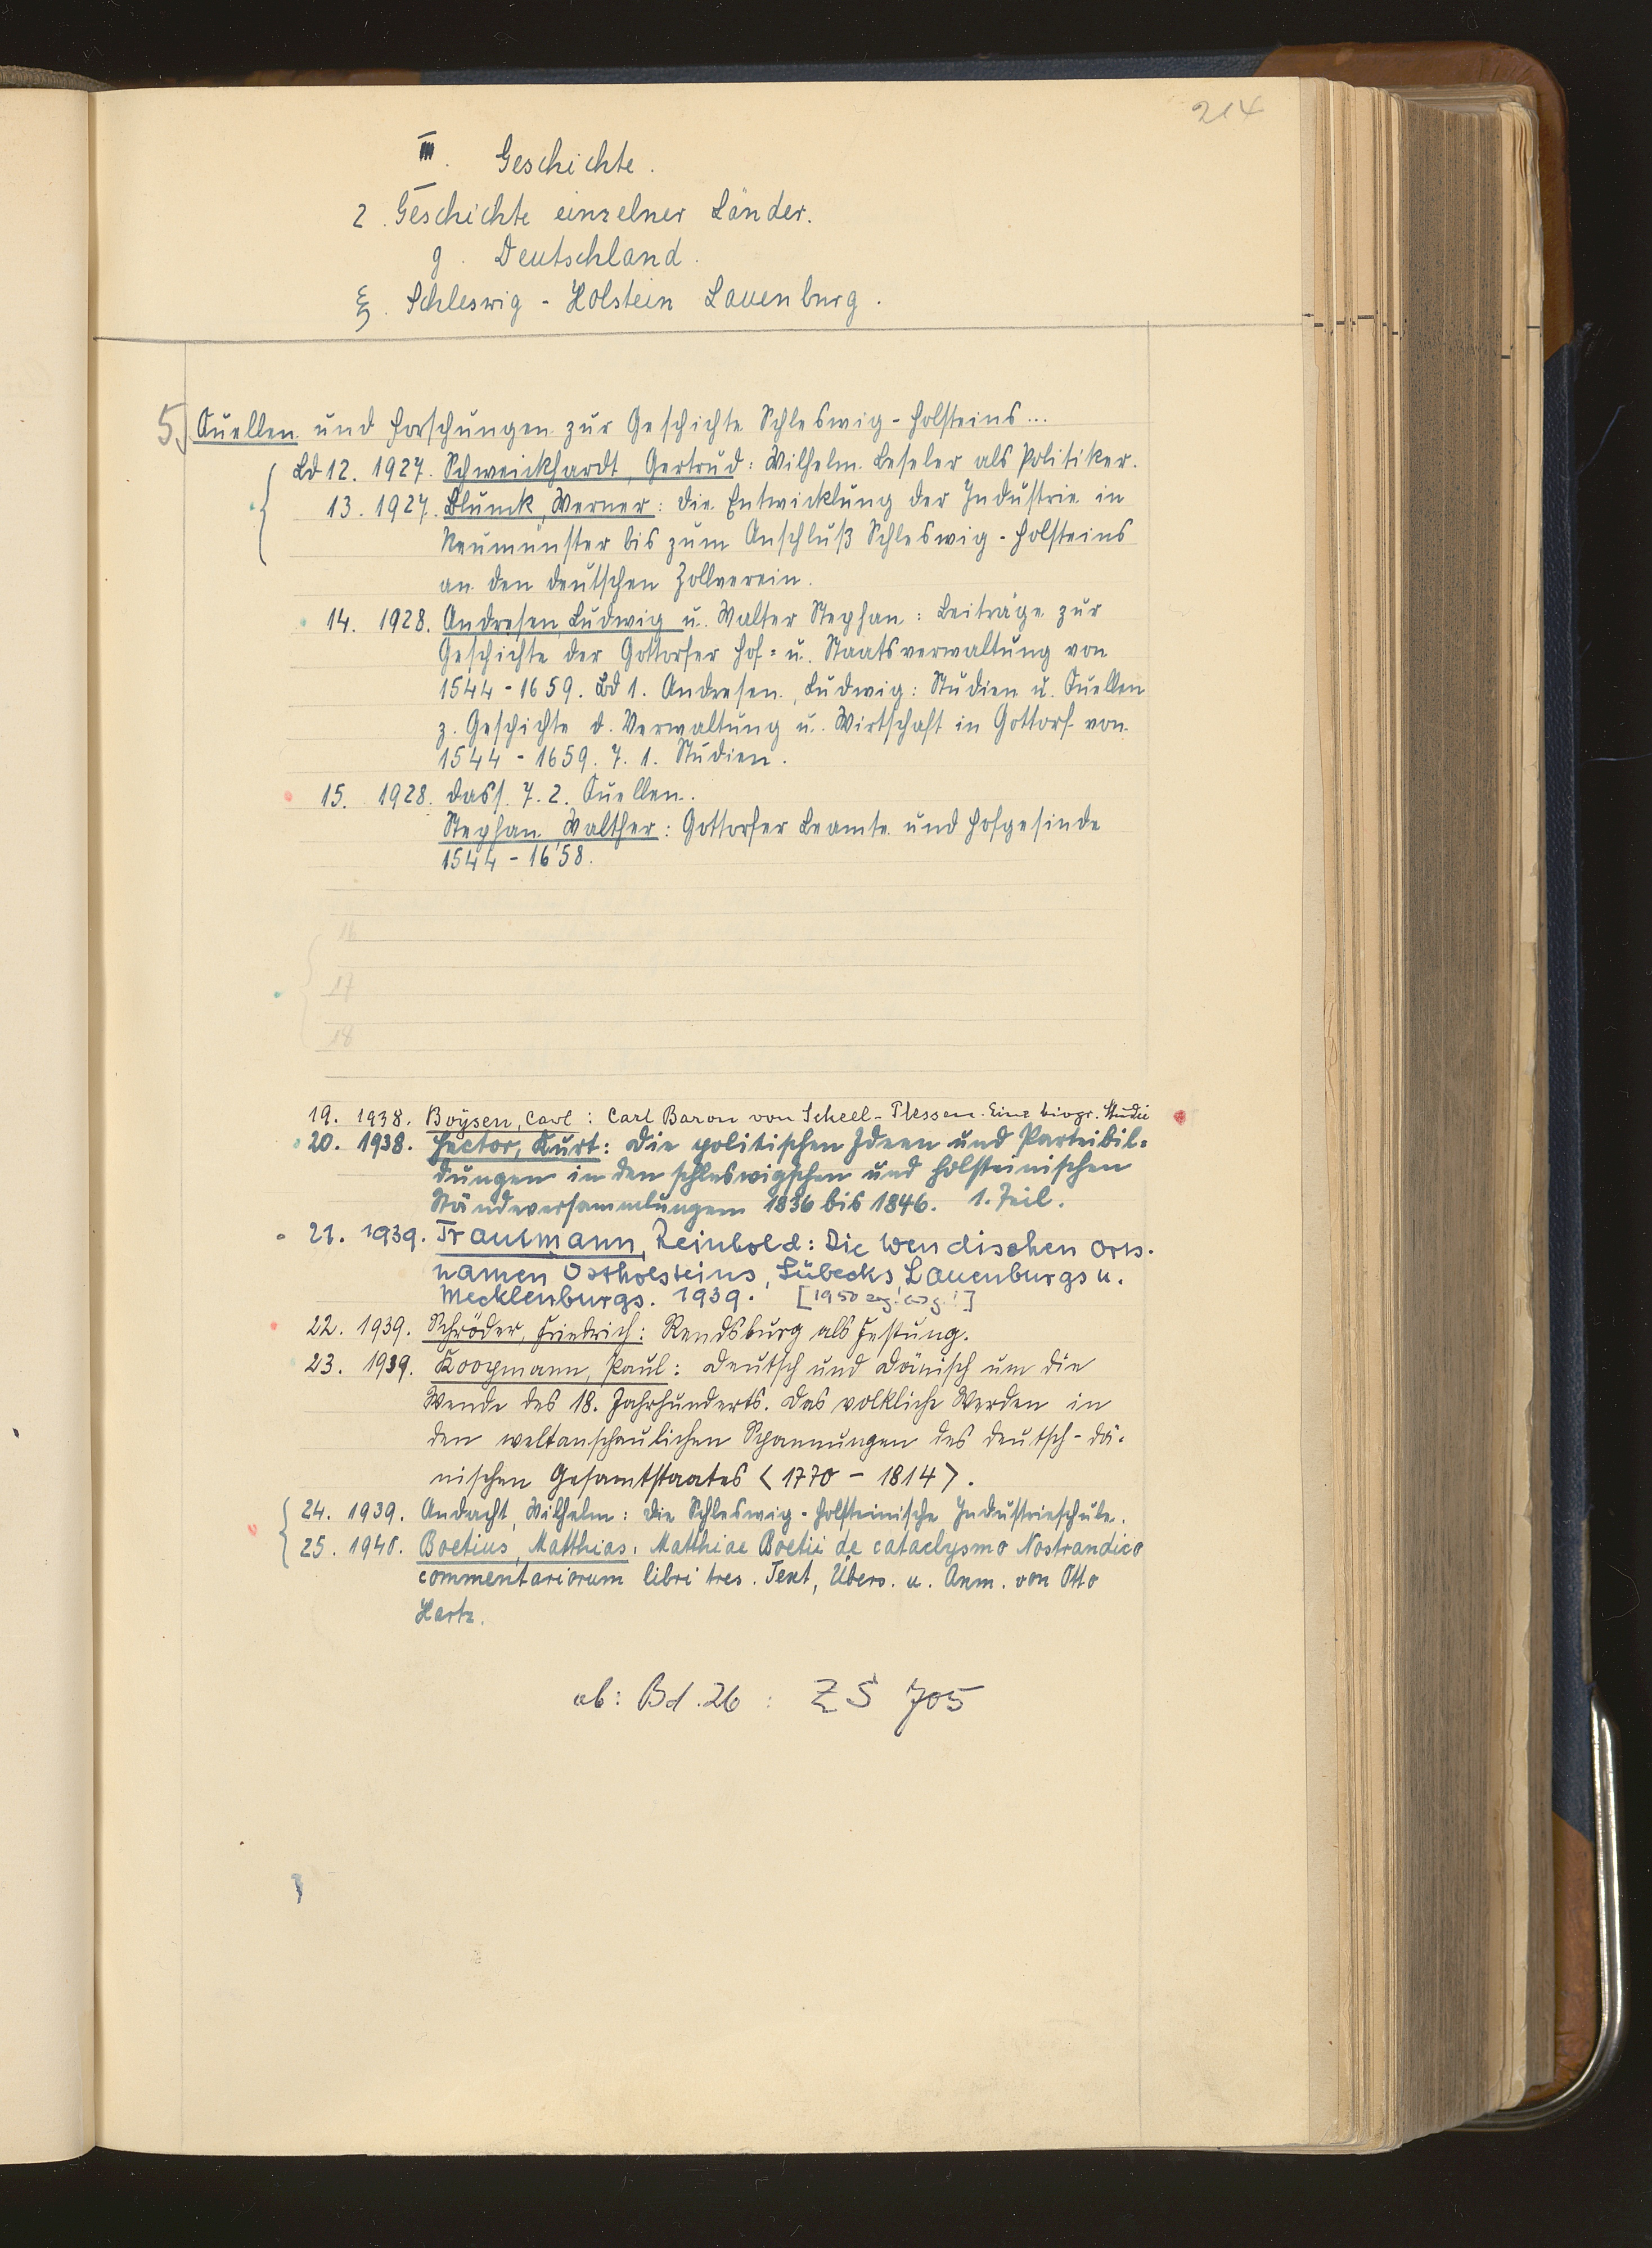 214
III. Geschichte.
2. Geschichte einzelner Länder.
g. Deutschland.
ξ. Schleswig-Holstein Lauenburg.
5) Quellen und Forschungen zur Geschichte Schleswig-Holsteins...
Bd 12. 1927. Schweickhardt, Gertrud: Wilhelm Beseler als Politiker.
13. 1927. Blunck, Werner: Die Entwicklung der Industrie in
Neumünster bis zum Anschluß Schleswig-Holsteins
an den deutschen Zollverein.
14. 1928. Andresen, Ludwig u. Walter Stephan: Beiträge zur
Geschichte der Gottorfer Hof= u. Staatsverwaltung von
1544-1659. Bd 1. Andresen, Ludwig: Studien u. Quellen
z. Geschichte d. Verwaltung u. Wirtschaft in Gottorf von
1544-1659. T. 1. Studien.
15. 1928. Dass. T. 2. Quellen.
Stephan, Walther: Gottorfer Beamte und Hofgesinde
1544-1658.
16
17
18
19. 1938. Boysen, Carl: Carl Baron von Scheel-Plessen. Eine biogr. Studie
20. 1938. Hector, Kurt: Die politischen Ideen und Parteibil=
dungen in den schleswigschen und holsteinischen
Ständeversammlungen 1836 bis 1846. 1. Teil.
21. 1939. Trautmann, Reinhold: Die Wendischen Orts-
namen Ostholsteins, Lübecks, Lauenburgs u.
Mecklenburgs. 1939. [1950
22. 1939. Schröder, Friedrich: Rendsburg als Festung.
23. 1939. Koopmann, Paul: Deutsch und Dänisch um die
Wende des 18. Jahrhunderts. Das volkliche Werden in
den weltanschaulichen Spannungen des deutsch-dä-
nischen Gesamtstaates <1770-1814>.
24. 1939. Andacht, Wilhelm: Die Schleswig-Holsteinische Industrieschule.
25. 1940. Boetius, Matthias: Matthiae Boetii de cataclysmo Nostrandico
commentariorum libri tres. Text, Übers. u. Anm. von Otto
Hartz.
ab: Bd. 26: ZS 705